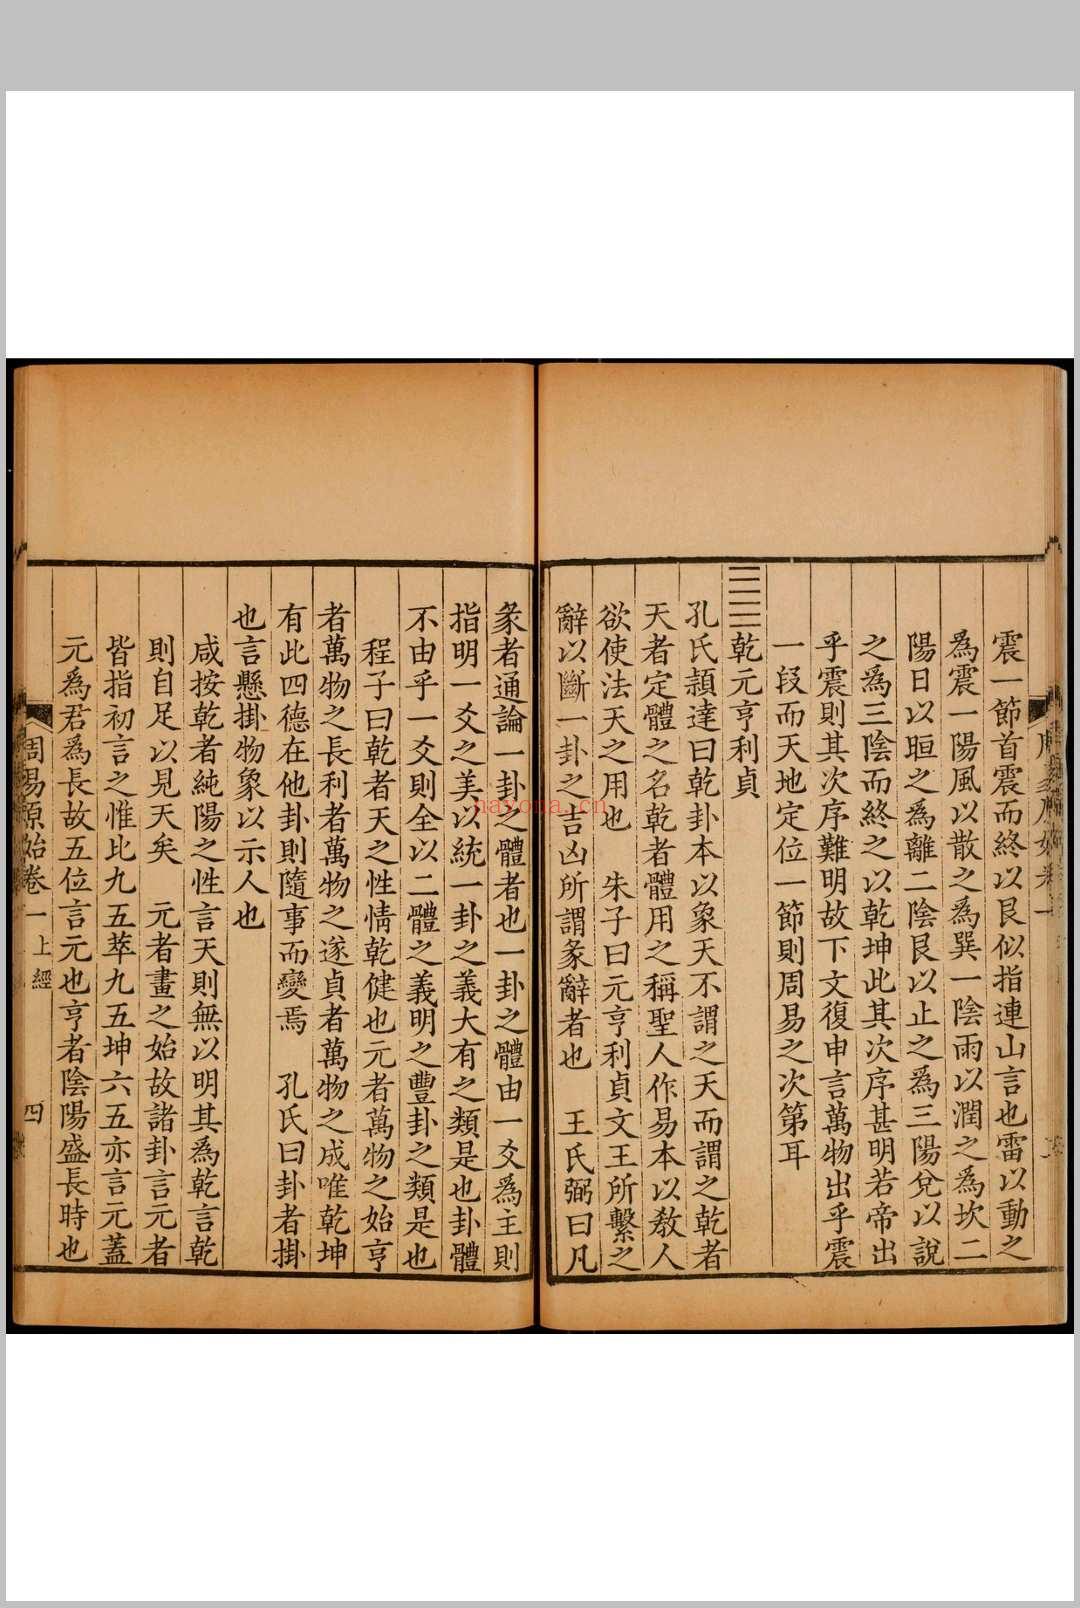 震一節首震而終以艮似指連山言也雷以動之
爲震一陽風以散之爲巽一陰雨以潤之爲坎二
陽日以晅之爲離二陰艮以止之爲三陽兌以說
之爲三陰而終之以乾坤此其次序甚明若帝出
乎震則其次序難明故下文復申言萬物出乎震
一段而天地定位一節則周易之次第耳
乾元亨利貞
孔氏頴達曰乾卦本以象天不謂之天而謂之乾者
天者定體之名乾者體用之稱聖人作易本以敎人
欲使法天之用也　朱子曰元亨利貞文王所繫之
辭以斷一卦之吉凶所謂彖辭者也　王氏弼曰凡
彖者通論一卦之體者也一卦之體由一爻爲主則
指明一爻之美以統一卦之義大有之類是也卦體
不由乎一爻則全以二體之義明之豐卦之類是也
程子曰乾者天之性情乾健也元者萬物之始亨
者萬物之長利者萬物之遂貞者萬物之成唯乾坤
有此四德在他卦則隨事而變焉　孔氏曰卦者掛
也言懸掛物象以示人也
咸按乾者純陽之性言天則無以明其爲乾言乾
則自足以見天矣　元者畫之始故諸卦言元者
皆指初言之惟比九五萃九五坤六五亦言元蓋
元爲君爲長故五位言元也亨者陰陽盛長時也
周易原始卷一 上經 四
nayona.cn